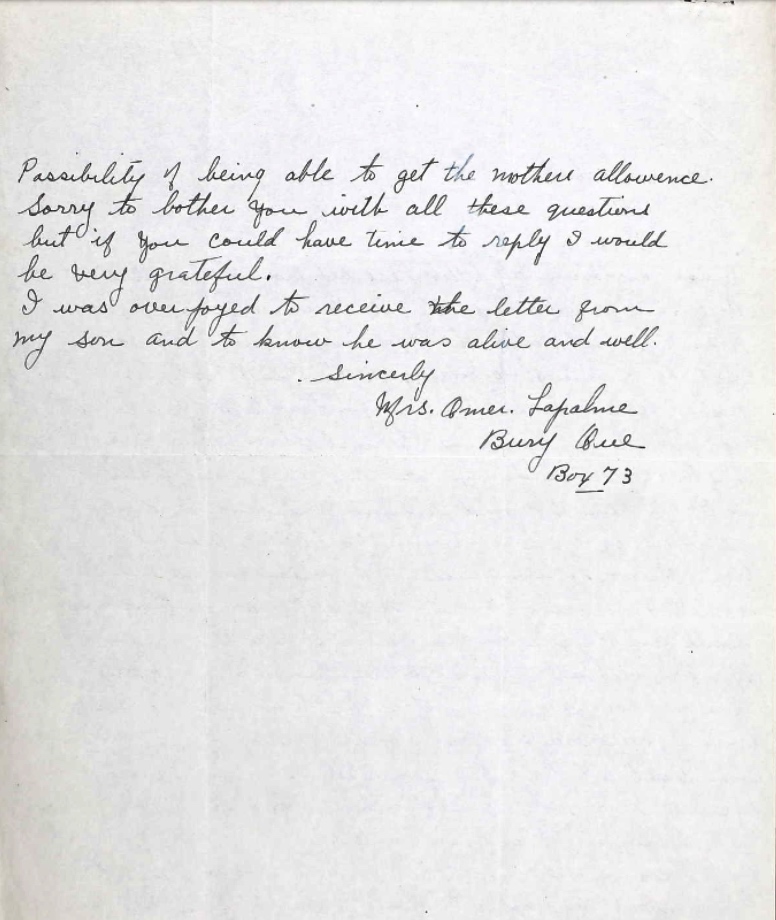 Possibility of being able to get the mothers allowence.
Sorry to bother you with all these questions
but if you could have time to reply I would
be very grateful.
I was overjoyed to receive the letter from
my son and to know he was alive and well.
Sincerly
Mrs. Omer. Lapalme
Bury Que
Box 73